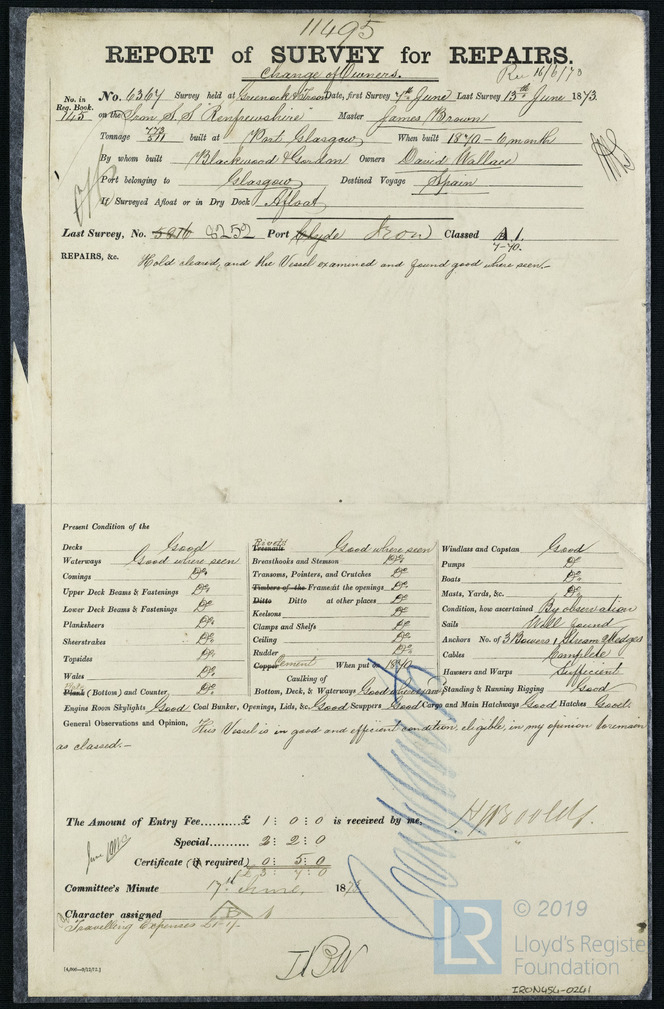 11495
REPORT of SURVEY for REPAIRS.
Change of Owners.
Rec 16/6/73
No. in Reg. Book. No. 6367 Survey held at Greenock & Troon Date, first Survey 7th June Last Survey 13th June 1873.
745 on the Iron S.S. "Renfrewshire" Master James Brown
Tonnage built at Port Glasgow When built 1870 - 6 month
By whom built Blackwood & Gordon Owners David Wallace
Port belonging to Glasgow Destined Voyage Spain
If Surveyed Afloat or in Dry Dock Afloat
Last Survey, No. 8252 Port Clyde Iron Classed A 1.
7-70.
REPAIRS, &c. Hold cleared, and the Vessel examined and found good where seen.-
Present Condition of the
Decks Good
Waterways Good where seen
Comings Do.
Upper Deck Beams & Fastenings Do
Lower Deck Beams & Fastenings Do
Planksheers
Sheerstrakes Do
Topsides Do
Wales Do
Plank (Bottom) and Counter Do.
Rivets
Treenails Good where seen
Breasthooks and Stemson Do.
Transoms, Pointers, and Crutches Do
Timbers of the Frame at the openings Do
Ditto Ditto at other places Do
Keelsons Do
Clamps and Shelfs Do
Ceiling Do
Rudder Do.
Copper Cement When put on 1870
Caulking of
Bottom, Deck, & Waterways Good where seen
Windlass and Capstan Good
Pumps Do
Boats Do.
Masts, Yards, &c. Do
Condition, how ascertained By observation
Sails Well found
Anchors No. of 3 Bowers 1 Stream 2 Kedges
Cables Complete
Hawsers and Warps Sufficient
Standing & Running Rigging Good
Engine Room Skylights Good Coal Bunker, Openings, Lids, &c. Good Scuppers Good Cargo and Main Hatchways Good Hatches Good.
General Observations and Opinion, This Vessel is in good and efficient condition, eligible, in my opinion to remain
as classed.-
The Amount of Entry Fee......... £ 1 : 0 : 0 is received by me,
Special......... 2 : 2 : 0
Certificate (if required) 0 : 5 : 0
£ 3 : 7 : 0
Committee's Minute 17th June, 1873
Character assigned A 1
Travelling Expenses £1-1/-
[4,000—9/12/72.]
© 2019
LR
Lloyd's Register
Foundation
IRON454-0241